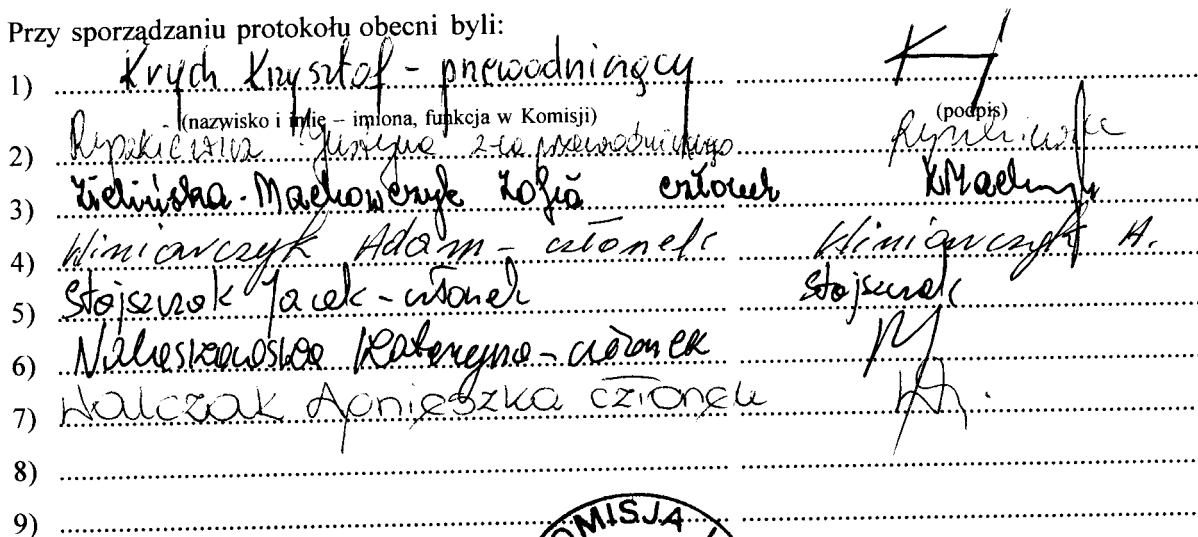 Przy sporządzaniu protokołu obecni byli:
1) Krych Krzysztof - przewodniczący
(nazwisko i imię – imiona, funkcja w Komisji) (podpis)
2) Justyna z-ca przewodniczącego
3) Zielińska-Machowczyk Zofia członek
4) Winiarczyk Adam - członek Winiarczyk A.
5) Stojszczak Jacek - członek Stojszczak
6) Katarzyna - członek
7) Walczak Agnieszka członek
8)
9)
OMISJA